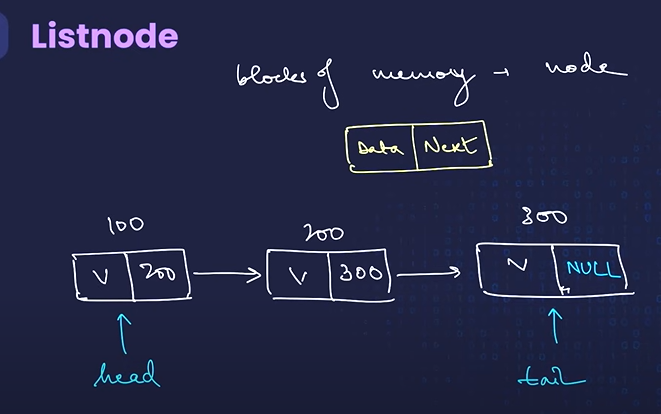 Listnode
blocks of memory → node
Data Next
100 200 300
V 200 V 300 N NULL
head tail